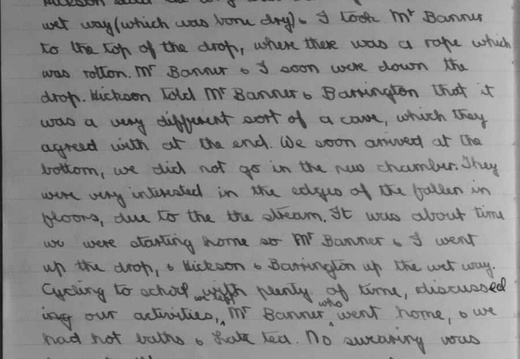 wet way (which was bone dry) & I took Mr Banner
to the top of the drop, where there was a rope which
was rotton. Mr Banner & I soon were down the
drop. Hickson told Mr Banner & Barrington that it
was a very different sort of a cave, which they
agreed with at the end. We soon arrived at the
bottom, we did not go in the new chamber. They
were very interested in the edges of the fallen in
floors, due to the the stream. It was about time
we were starting home so Mr Banner & I went
up the drop, & Hickson & Barrington up the wet way.
Cycling to school with plenty of time, discussed
ing our activities, Mr Banner who went home, & we
had hot baths & late tea. No swearing was